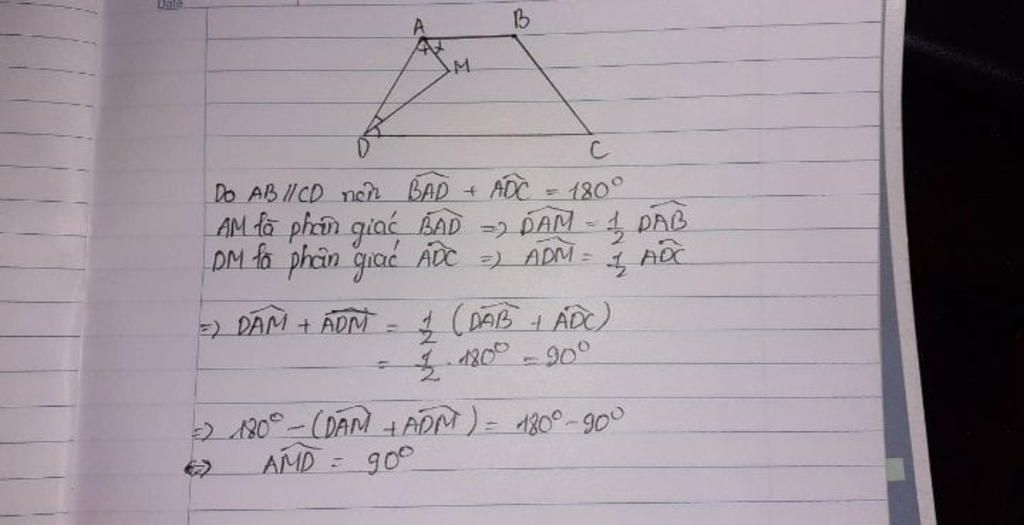 Date
A B
M
D C
Do AB//CD nên BAD + ADC = 180°
AM là phân giác BAD => DAM = 1/2 DAB
DM là phân giác ADC => ADM = 1/2 ADC
=> DAM + ADM = 1/2 (DAB + ADC)
= 1/2 . 180° = 90°
=> 180° - (DAM + ADM) = 180° - 90°
<=> AMD = 90°